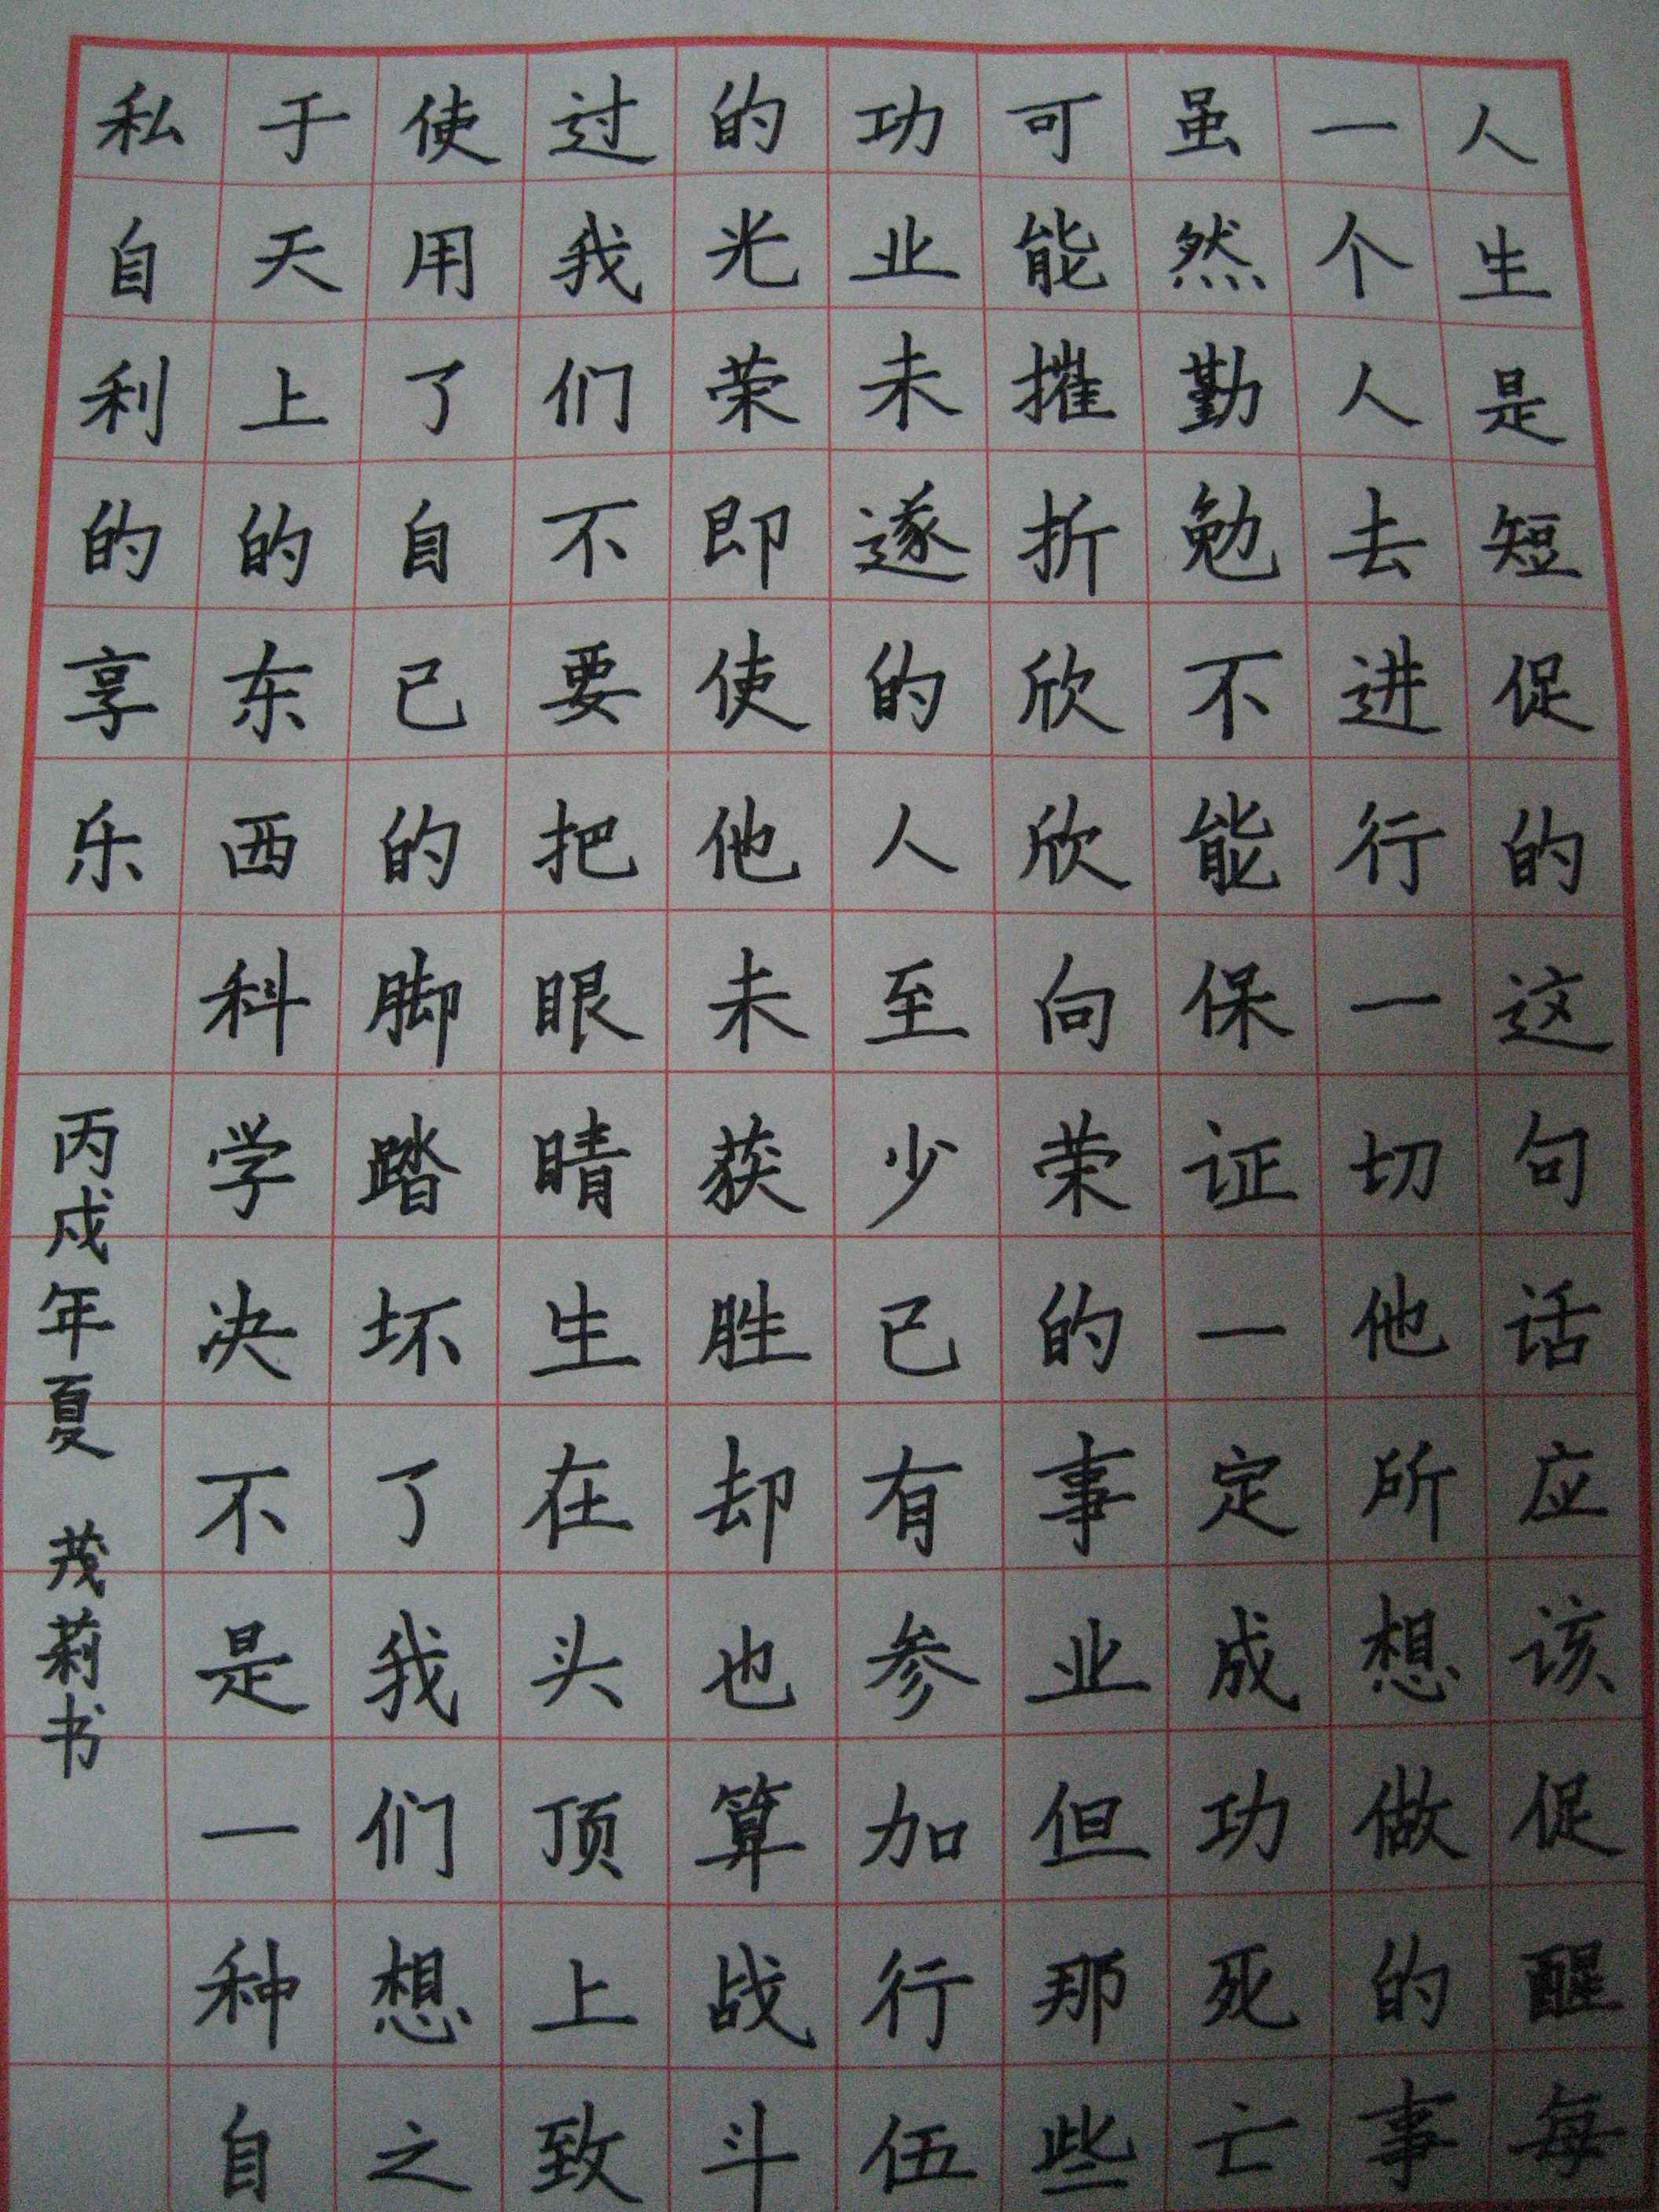 人生是短促的这句话应该促醒每
一个人去进行一切他所想做的事
虽然勤勉不能保证一定成功死亡
可能摧折欣欣向荣的事业但那些
功业未遂的人至少已有参加行伍
的光荣即使他未获胜却也算战斗
过我们不要把眼睛生在头顶上致
使用了自己的脚踏坏了我们想之
于天上的东西科学决不是一种自
私自利的享乐
丙戌年夏 茂莉书